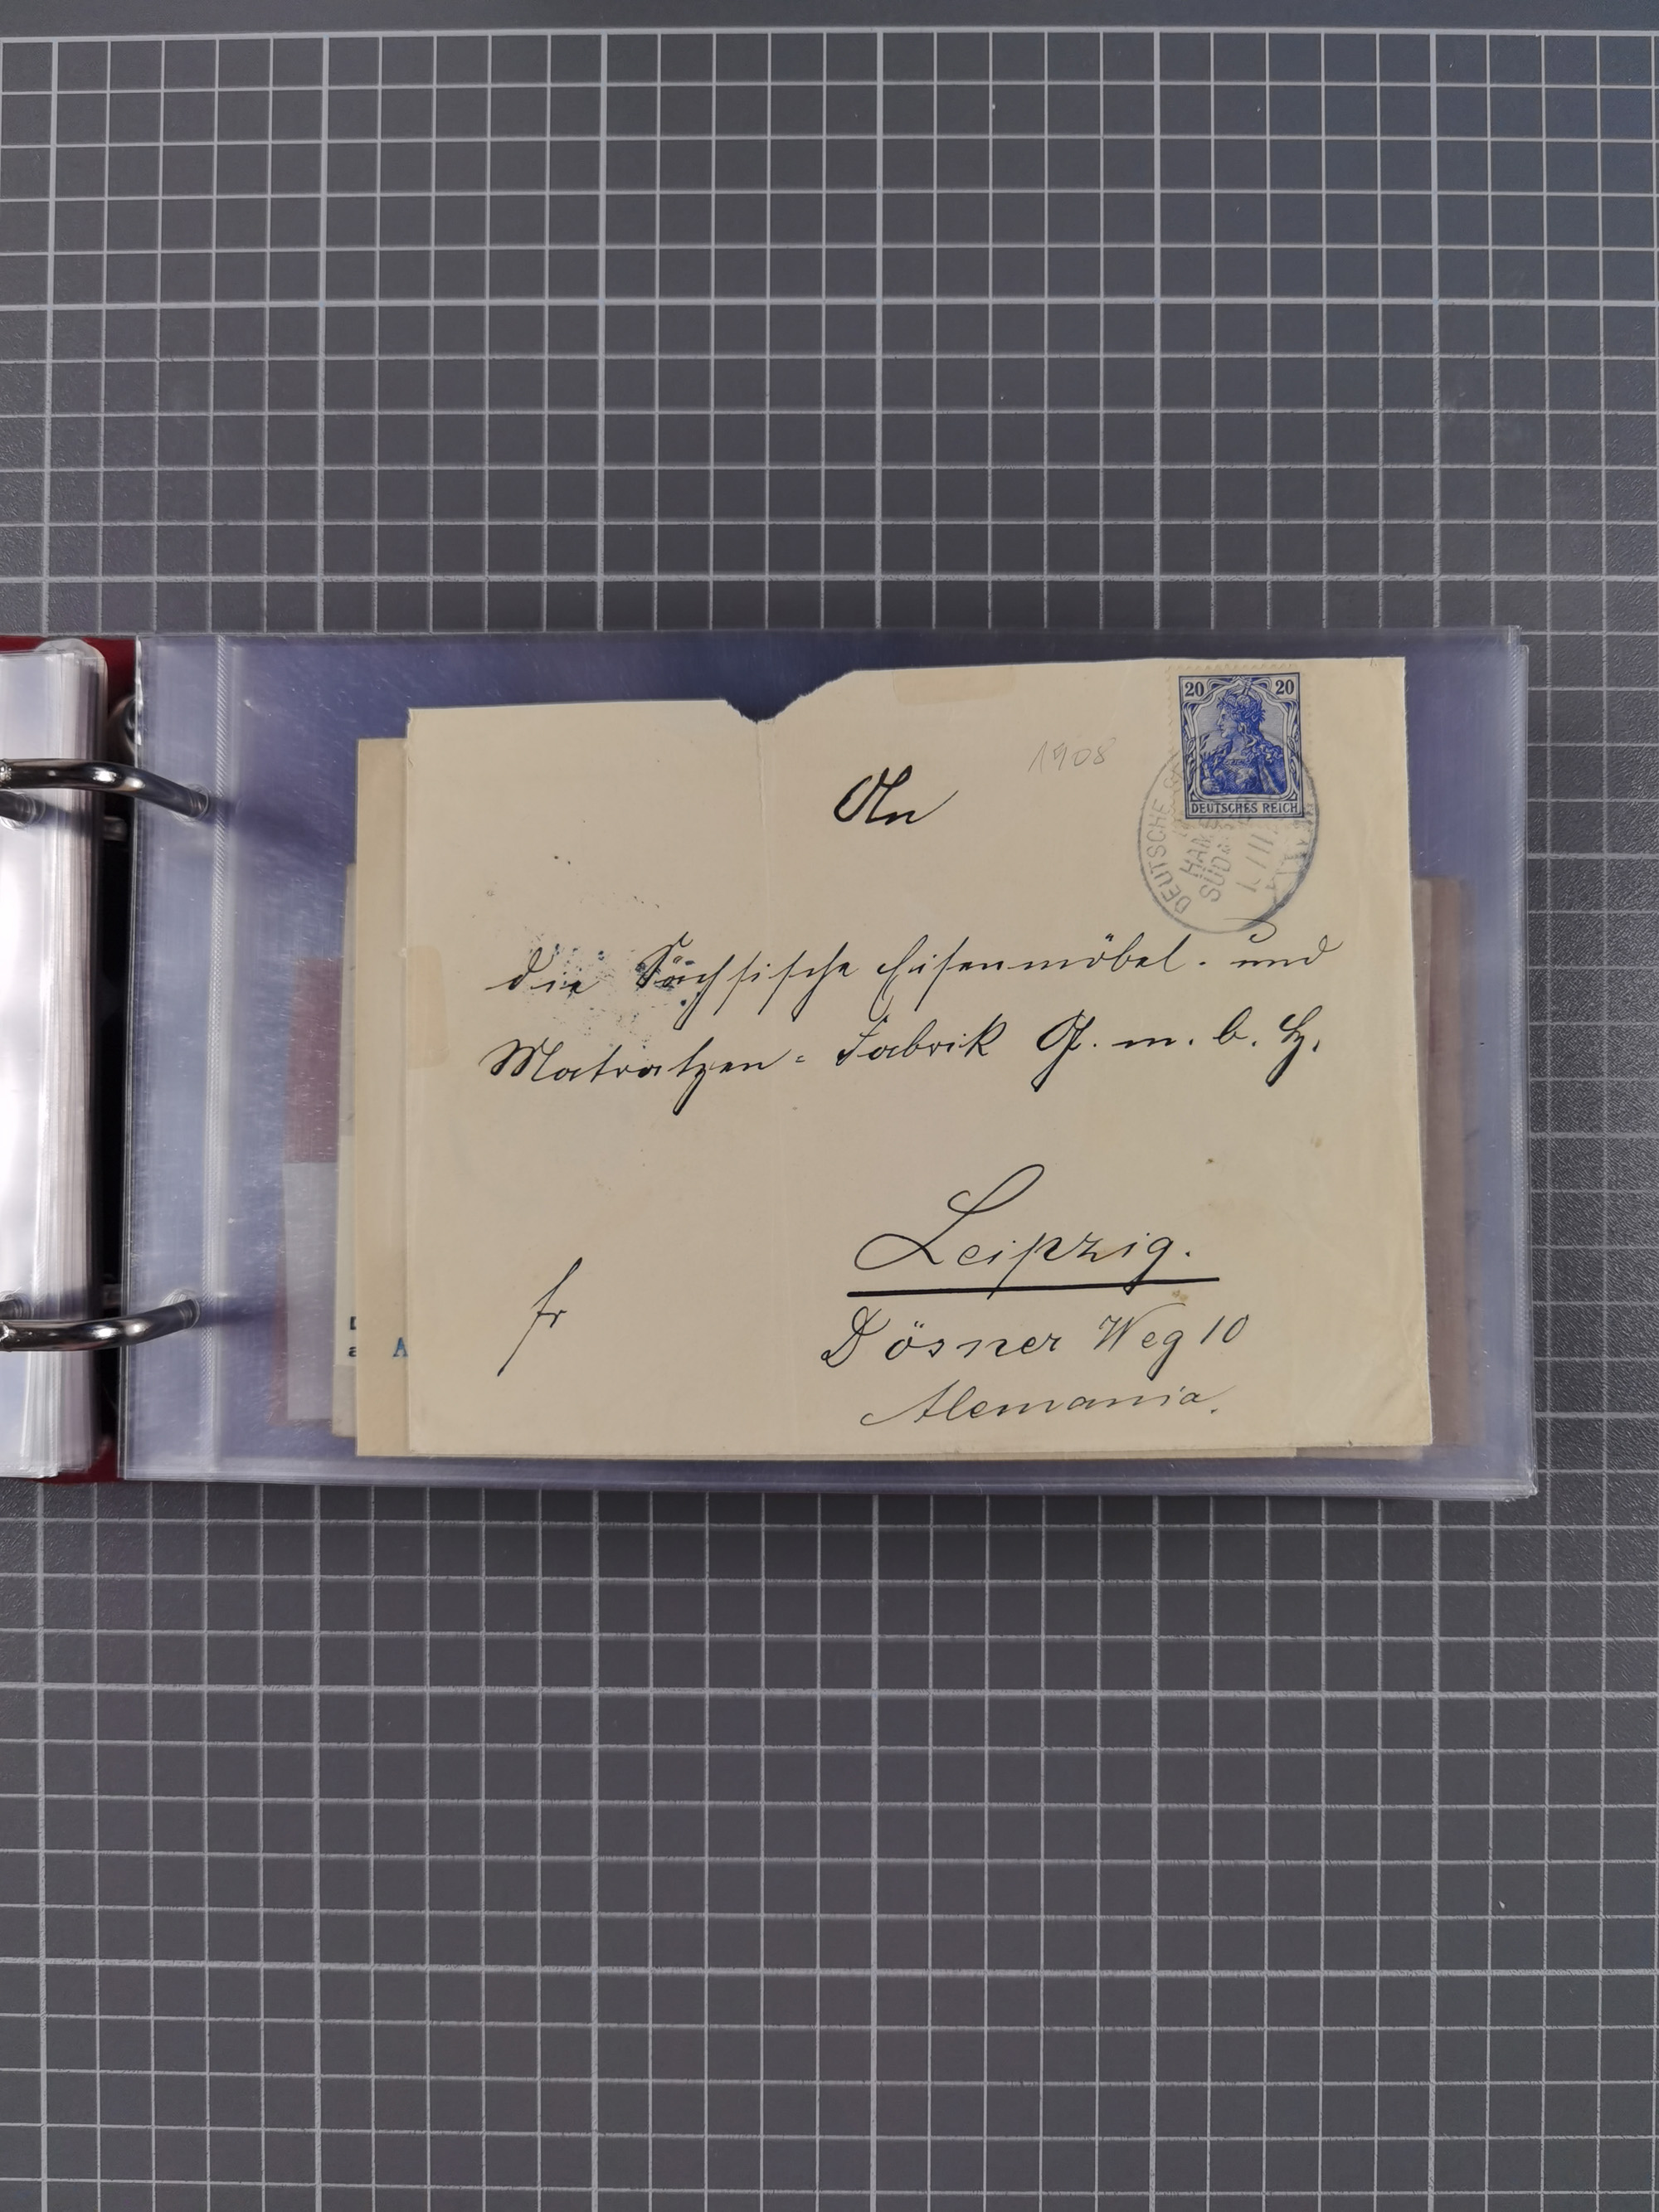 20 20
DEUTSCHES REICH
1908
DEUTSCHE
HAM
SÜD
An
die Sächsische Eisenmöbel- und
Matratzen=Fabrik G. m. b. H.
Leipzig.
fr
Dösner Weg 10
Alemania.
A